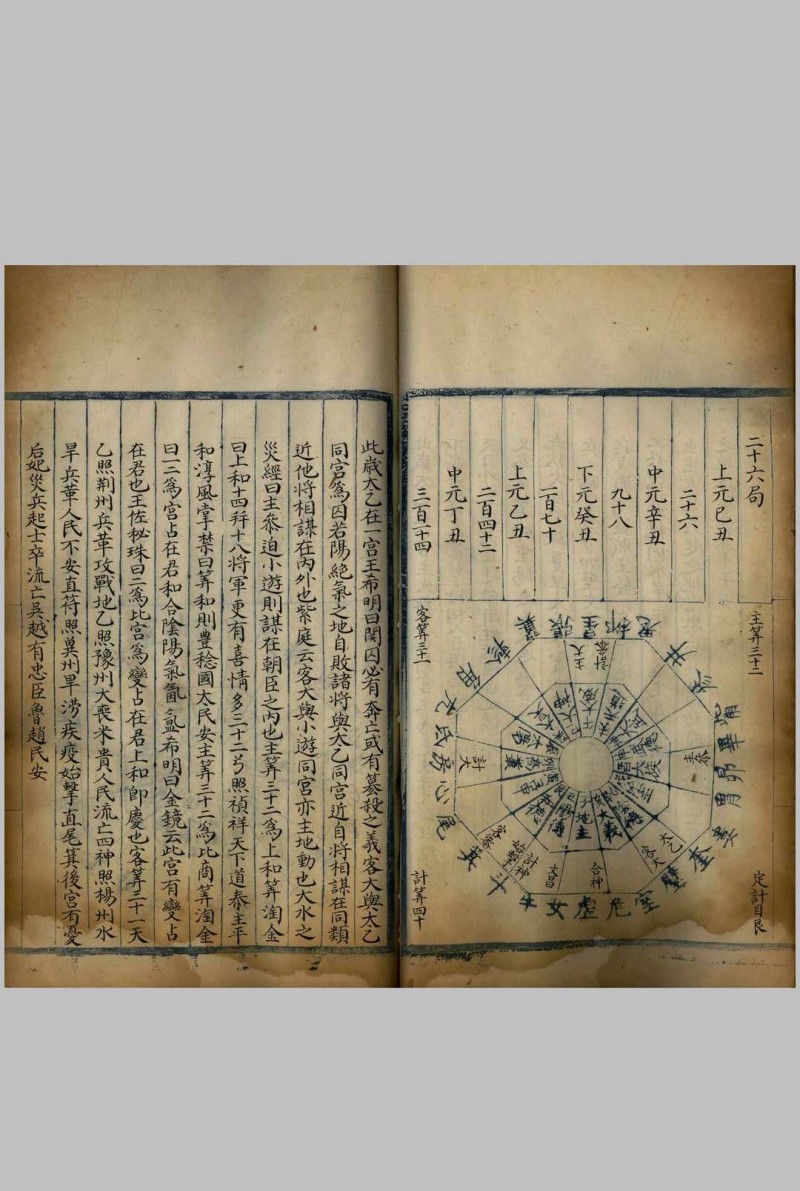 二十六局
上元己丑
二十六
中元辛丑
九十八
下元癸丑
一百七十
上元乙丑
二百四十二
中元丁丑
三百一十四
主筭三十二
定計目艮
客筭三十一
計筭四十
翼張星柳鬼
井
觜畢昴胃
奎
壁
室危虛女牛
斗
箕
尾心房氐亢
角
軫
主大
計參
主參
太乙
客大
合神
文昌
計神
始擊
客參
計大
此歲太乙在一宮王希明曰関囚必有奔亡或有篡殺之義客大與太乙
同宮爲囚若陽絕氣之地自敗諸將與太乙同宮近自將相謀在同類
近他將相謀在內外也紫庭云客大與小遊同宮亦主地動也大水之
災經曰主參迫小遊則謀在朝臣之內也主筭三十二爲上和筭淘金
曰上和十四并十八將軍更有喜情多三十二名照禎祥天下道泰主平
和淳風掌禁曰筭和則豊稔國太民安主筭三十二爲比商筭淘金
曰一二爲宮占在君和合陰陽氣氤氳希明曰金鏡云此宮有變占
在君也王佐秘珠曰二爲比宮爲變占在君上和卽慶也客筭三十一天
乙照荆州兵革攻戰地乙照豫州大喪米貴人民流亡四神照楊州水
旱兵革人民不安直符照冀州旱澇疾疫始擊直尾箕後宮有憂
后妃災兵起士卒流亡吳越有忠臣魯趙民安